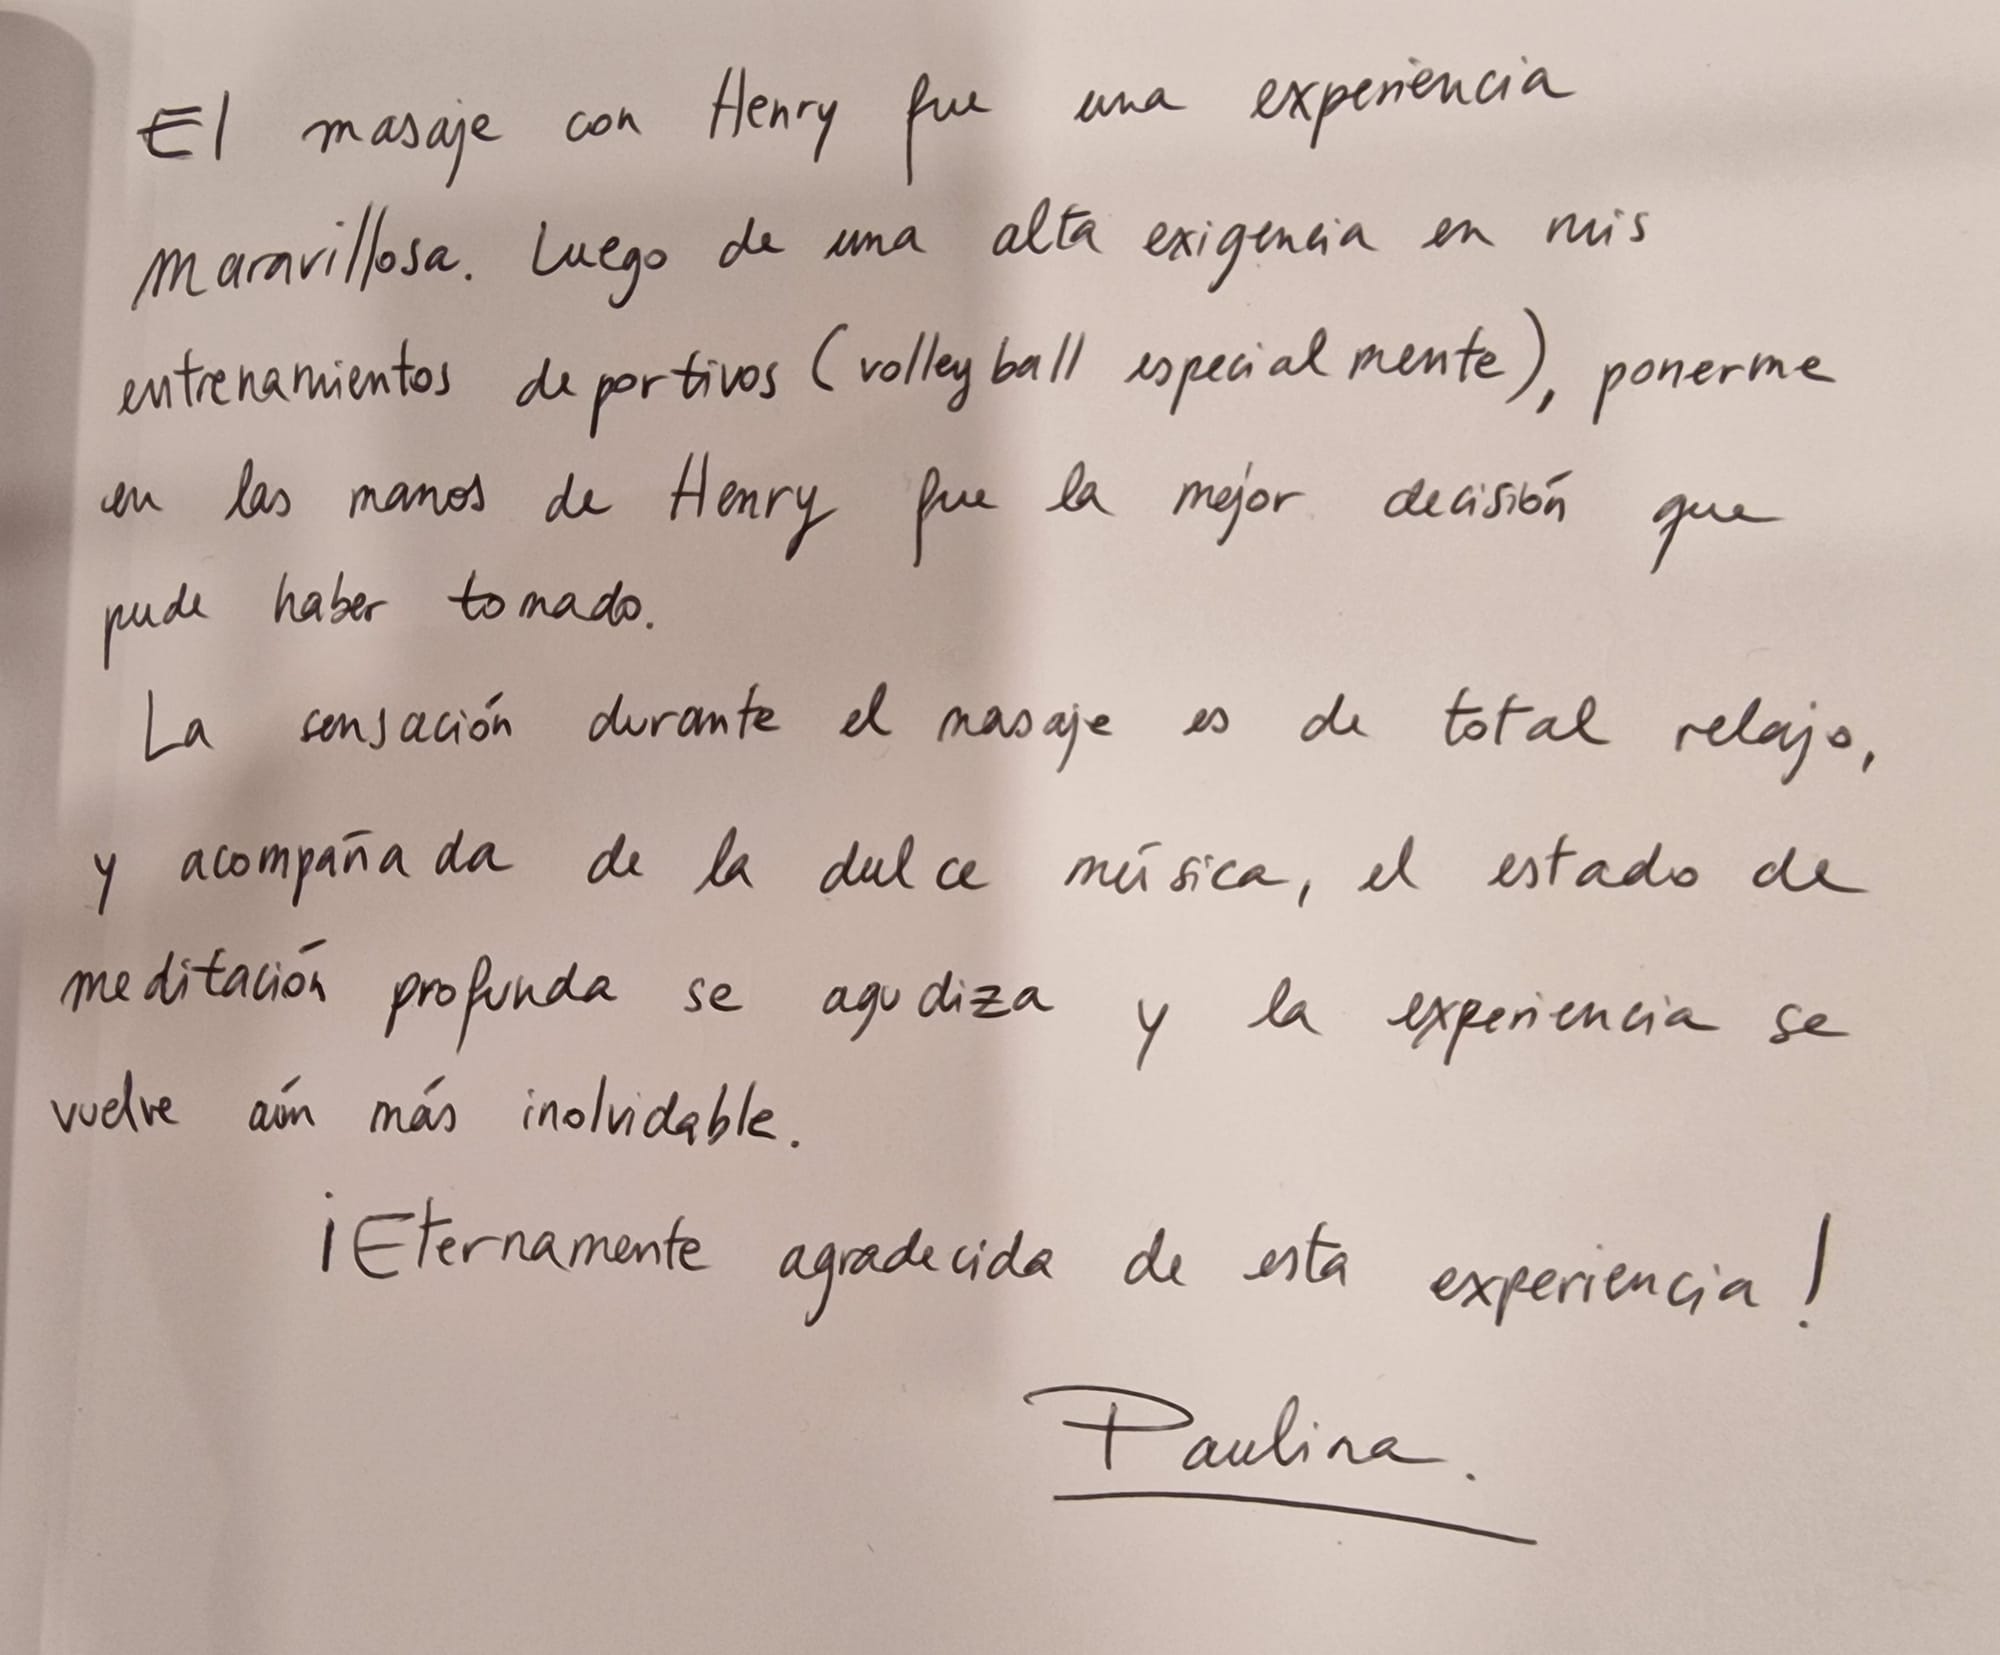 El masaje con Henry fue una experiencia
maravillosa. Luego de una alta exigencia en mis
entrenamientos deportivos (volleyball especialmente), ponerme
en las manos de Henry fue la mejor decisión que
pude haber tomado.
La sensación durante el masaje es de total relajo,
y acompañada de la dulce música, el estado de
meditación profunda se agudiza y la experiencia se
vuelve aún más inolvidable.
¡Eternamente agradecida de esta experiencia!
Paulina.